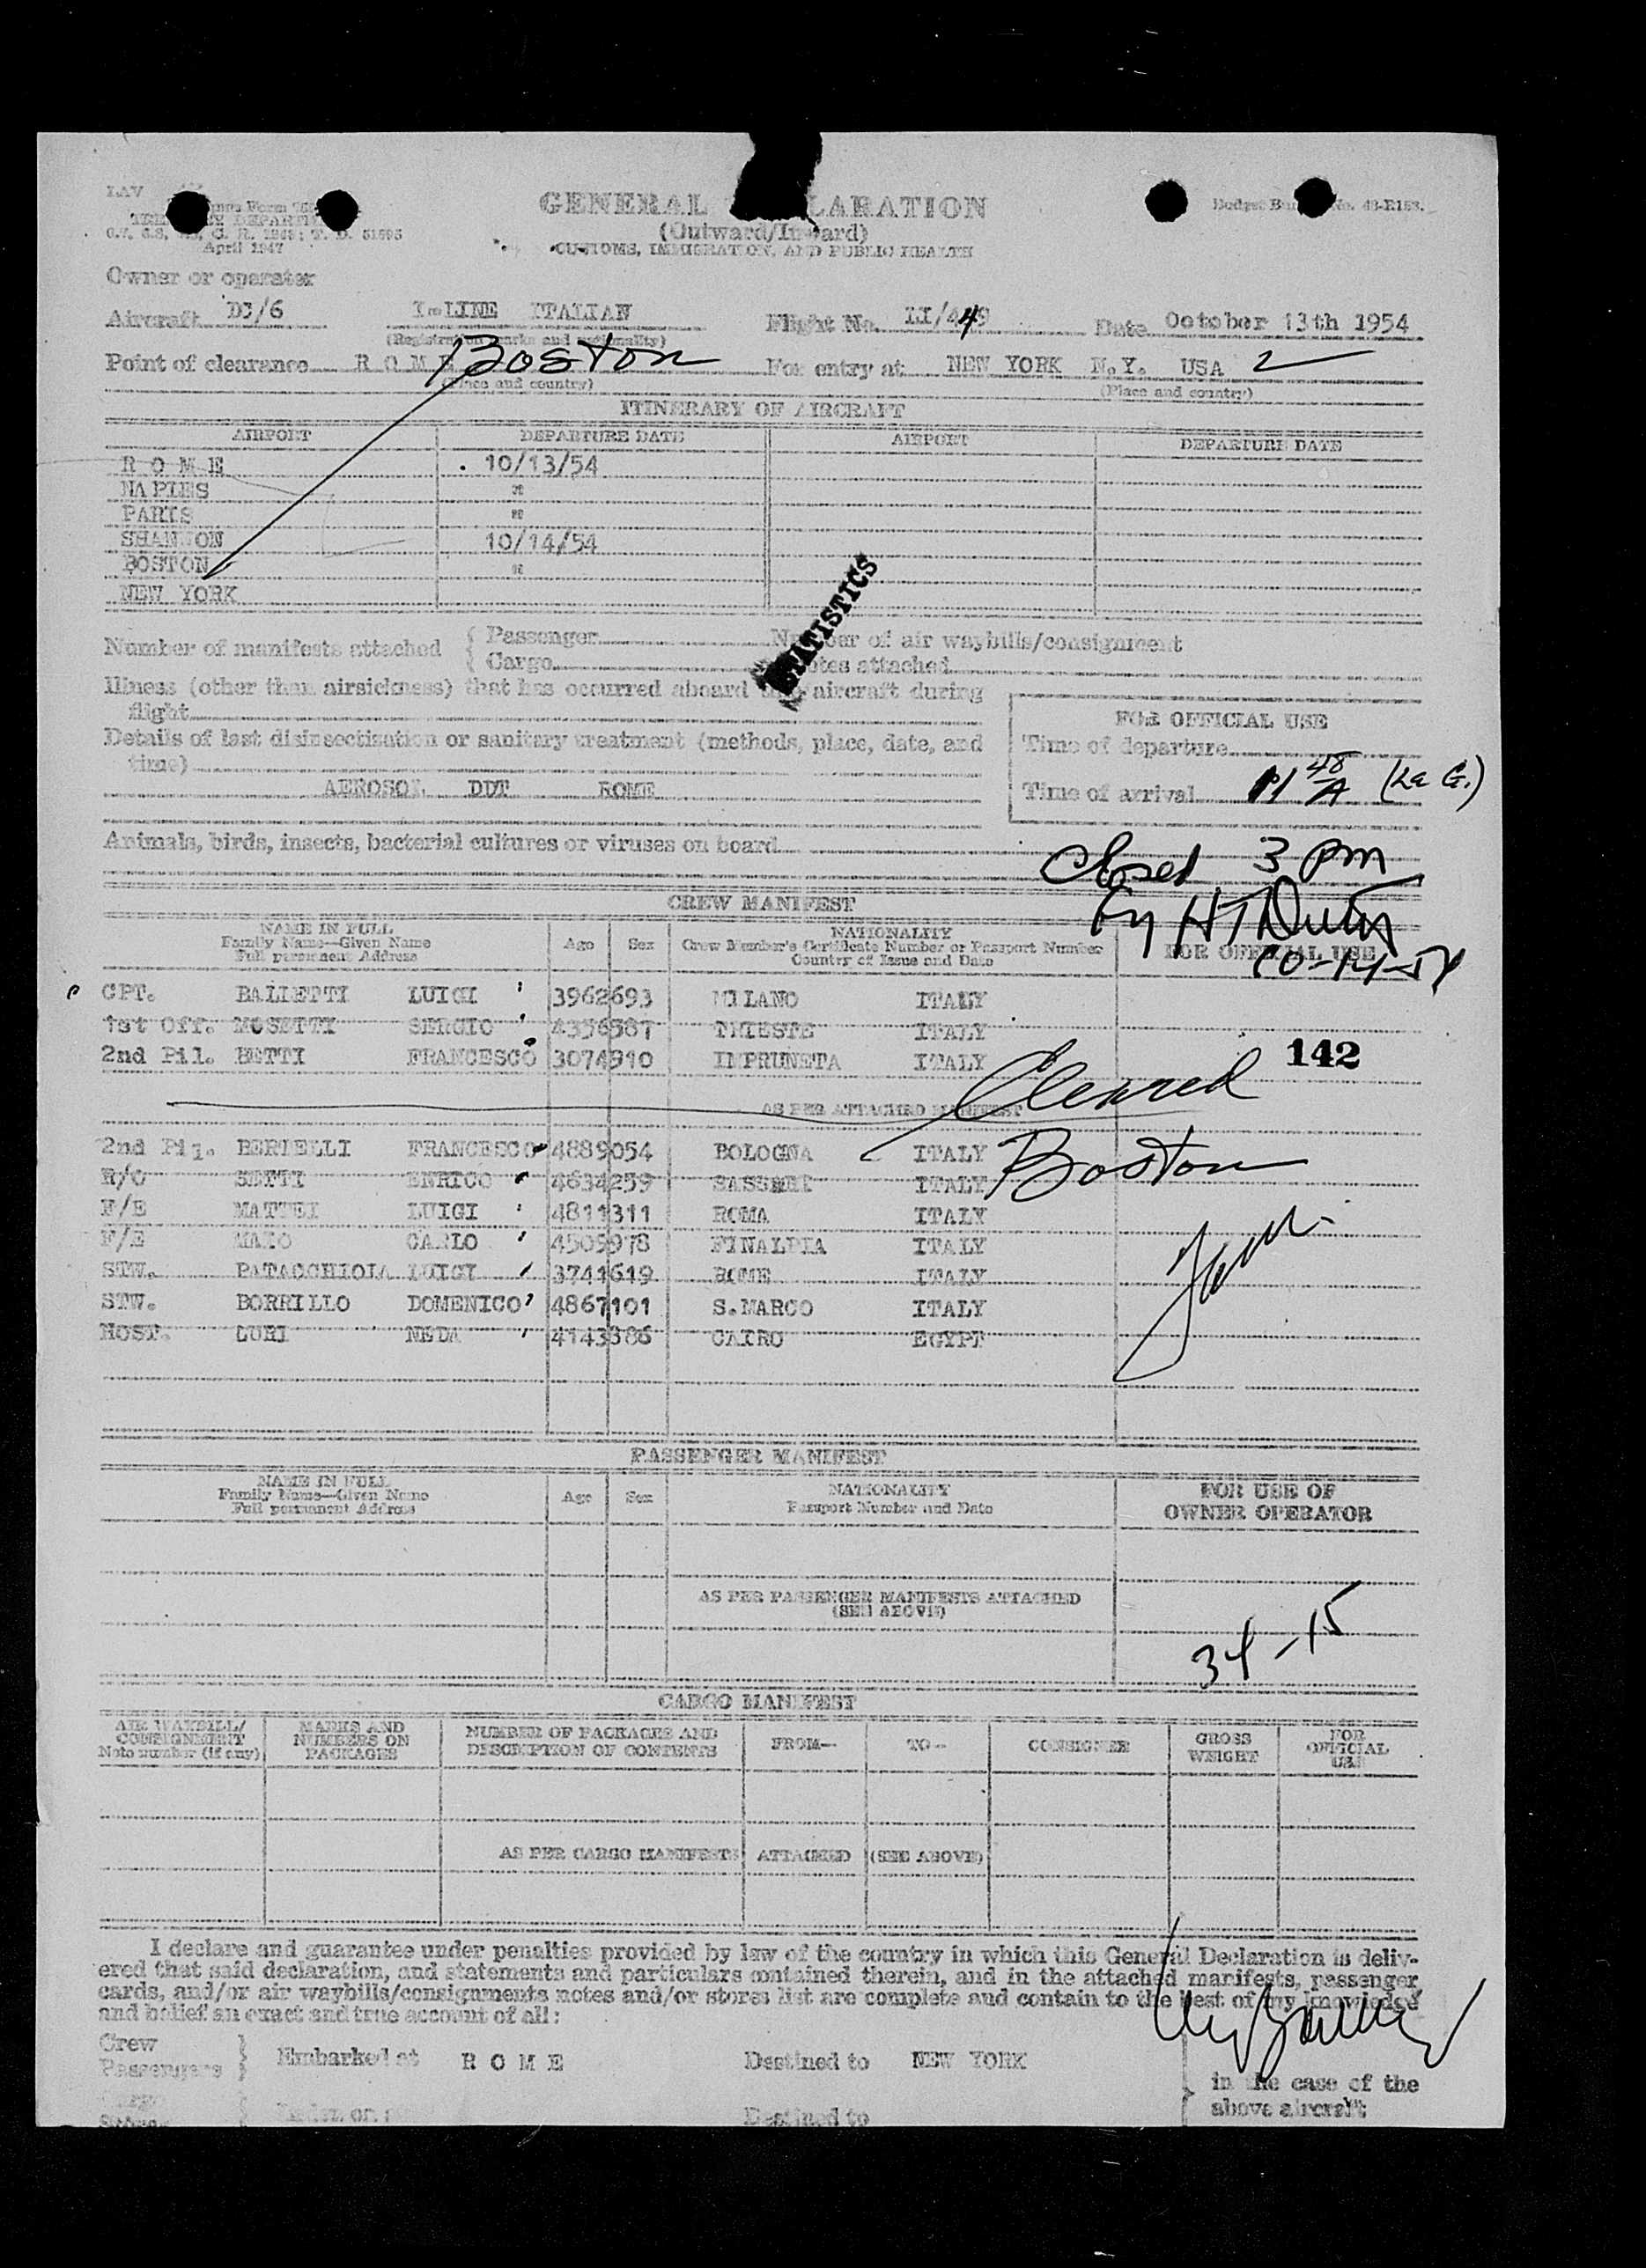 LAV
April 1947
GENERAL LARATION
(Outward/Inward)
CUSTOMS, IMMIGRATION, AND PUBLIC HEALTH
Owner or operator
Aircraft DC/6 I-LINE ITALIAN Flight No. LI/449 Date October 13th 1954
(Registration marks and nationality)
Point of clearance R O M E Boston For entry at NEW YORK N.Y. USA 2
(Place and country) (Place and country)
ITINERARY OF AIRCRAFT
AIRPORT DEPARTURE DATE AIRPORT DEPARTURE DATE
R O M E 10/13/54
NAPLES "
PARIS "
SHANNON 10/14/54
BOSTON "
NEW YORK
STATISTICS
Number of manifests attached { Passenger Number of air waybills/consignment
{ Cargo notes attached
Illness (other than airsickness) that has occurred aboard this aircraft during
flight
FOR OFFICIAL USE
Details of last disinsectization or sanitary treatment (methods, place, date, and
time)
Time of departure
AEROSOL DDT ROME
Time of arrival 11 48 A (La G.)
Animals, birds, insects, bacterial cultures or viruses on board
Closed 3 pm
CREW MANIFEST
10-14-54
NAME IN FULL
Family Name—Given Name
Full permanent Address
Age Sex
NATIONALITY
Crew Member's Certificate Number or Passport Number
Country of Issue and Date
FOR OFFICIAL USE
CPT. BALLETTI LUIGI 3962693 MILANO ITALY
1st Off. MOSETTI SERGIO 4356587 TRIESTE ITALY
2nd Pil. BETTI FRANCESCO 3074910 IMPRUNETA ITALY
142
AS PER ATTACHED MANIFEST
Cleared
Boston
2nd Pil. BERTELLI FRANCESCO 4889054 BOLOGNA ITALY
R/O SETTI ENRICO 4634259 ITALY
F/E MATTEI LUIGI 4811311 ROMA ITALY
F/E MAIO CARLO 4505978 FINALPIA ITALY
STW. PATACCHIOLA LUIGI 3741619 ROME ITALY
STW. BORRILLO DOMENICO 4867101 S.MARCO ITALY
HOST. LURI NEDA 4143386 CAIRO EGYPT
PASSENGER MANIFEST
NAME IN FULL
Family Name—Given Name
Full permanent Address
Age Sex
NATIONALITY
Passport Number and Date
FOR USE OF
OWNER OPERATOR
AS PER PASSENGER MANIFESTS ATTACHED
(SEE ABOVE)
34-15
CARGO MANIFEST
AIR WAYBILL/
CONSIGNMENT
Note number (if any)
MARKS AND
NUMBERS ON
PACKAGES
NUMBER OF PACKAGES AND
DESCRIPTION OF CONTENTS
FROM—
TO—
CONSIGNEE
GROSS
WEIGHT
FOR
OFFICIAL
USE
AS PER CARGO MANIFESTS ATTACHED (SEE ABOVE)
I declare and guarantee under penalties provided by law of the country in which this General Declaration is deliv-
ered that said declaration, and statements and particulars contained therein, and in the attached manifests, passenger
cards, and/or air waybills/consignments notes and/or stores list are complete and contain to the best of my knowledge
and belief an exact and true account of all:
Crew
Passengers } Embarked at R O M E Destined to NEW YORK
in the case of the
above aircraft
Destined to